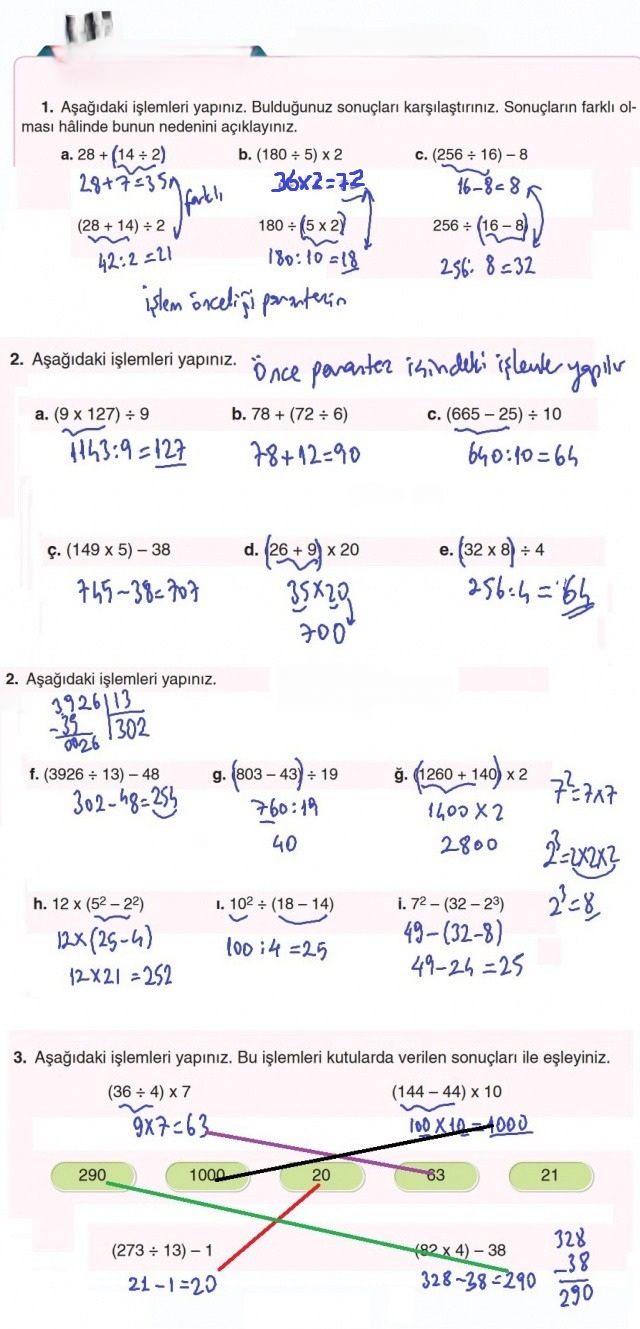 1. Aşağıdaki işlemleri yapınız. Bulduğunuz sonuçları karşılaştırınız. Sonuçların farklı ol-
ması hâlinde bunun nedenini açıklayınız.
a. 28 + (14 ÷ 2) b. (180 ÷ 5) x 2 c. (256 ÷ 16) – 8
28+7=35 36x2=72 16-8=8
farklı
(28 + 14) ÷ 2 180 ÷ (5 x 2) 256 ÷ (16 – 8)
42:2=21 180:10=18 256:8=32
işlem önceliği parantezin
2. Aşağıdaki işlemleri yapınız. Önce parantez içindeki işlemler yapılır
a. (9 x 127) ÷ 9 b. 78 + (72 ÷ 6) c. (665 – 25) ÷ 10
1143:9=127 78+12=90 640:10=64
ç. (149 x 5) – 38 d. (26 + 9) x 20 e. (32 x 8) ÷ 4
745-38=707 35x20 256:4=64
700
2. Aşağıdaki işlemleri yapınız.
3926 | 13
-39 302
0026
f. (3926 ÷ 13) – 48 g. (803 – 43) ÷ 19 ğ. (1260 + 140) x 2 7²=7x7
302-48=254 760:19 1400x2
40 2800 2³=2x2x2
h. 12 x (5² – 2²) ı. 10² ÷ (18 – 14) i. 7² – (32 – 2³) 2³=8
12x(25-4) 100:4=25 49-(32-8)
12x21=252 49-24=25
3. Aşağıdaki işlemleri yapınız. Bu işlemleri kutularda verilen sonuçları ile eşleyiniz.
(36 ÷ 4) x 7 (144 – 44) x 10
9x7=63 100x10=1000
290 1000 20 63 21
(273 ÷ 13) – 1 (82 x 4) – 38 328
21-1=20 328-38=290 -38
290